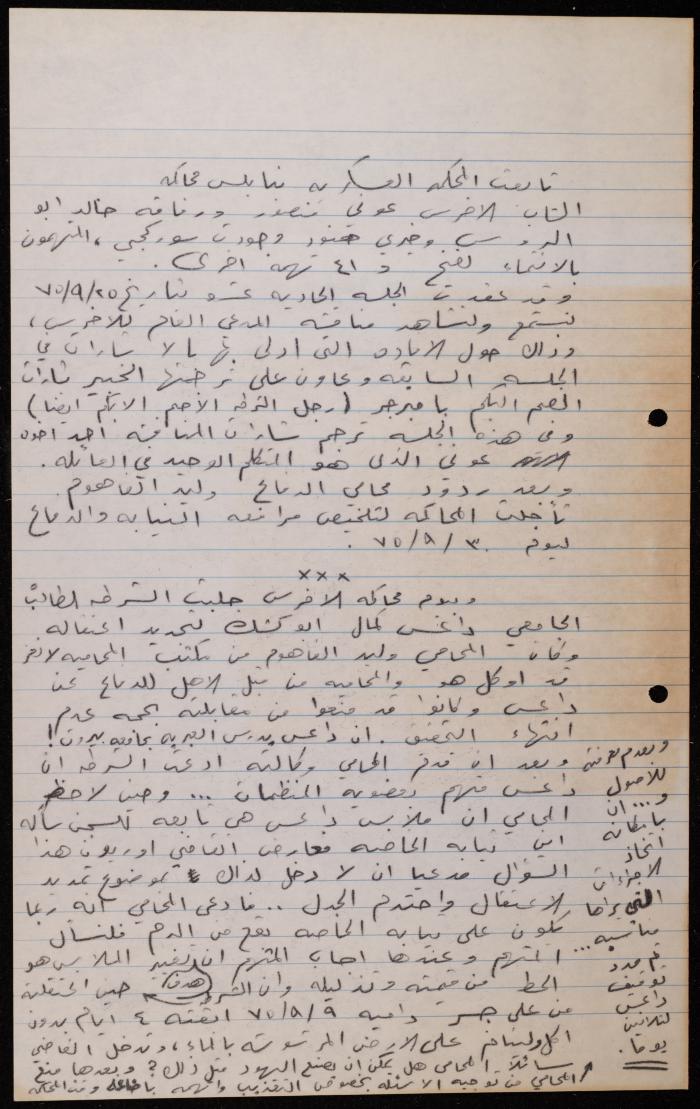 تابعت المحكمه العسكريه بنابلس محاكمه
الشاب الاخرس عوني منصور ورفاقه خالد ابو
الروس وخيري حنبور وجودت سوركجي، المتهمون
بالانتماء لفتح و ٤١ تهمه اخرى.
وقد عقدت الجلسه الحاديه عشر بتاريخ ٧٥/٩/٢٥
لتستمع ولتشاهد مناقشه المدعي العام للاخرس،
وذلك حول الافاده التي ادلى بها بالاشارات في
الجلسه السابقه وعاون على ترجمتها الخبير باشارات
الصم البكم بامبرجر (رجل الشرطه الأصم الابكم ايضا)
وفي هذه الجلسه ترجم شارات المناقشه احد اخوه
عوني الذي هو المتكلم الوحيد في العائله.
وبعد ردود محامي الدفاع وليد الفاهوم
تأجلت المحاكمه لتلخيص مرافعه النيابه والدفاع
ليوم ٧٥/٩/٣٠.
×××
ويوم محاكمه الاخرس جلبت الشرطه الطالب
الجامعي داغس كمال ابو كشك لتجديد اعتقاله
وكان المحامي وليد الفاهوم من مكتب المحاميه لانغر
قد اوكل هو والمحاميه من قبل الاهل للدفاع عن
داغس وكانوا قد منعوا من مقابلته بحجه عدم
انتهاء التحقيق. ان داغس يدرس العربيه بجامعه بيروت!
وبعد ان قدم المحامي وكالته ادعت الشرطه ان
داغس متهم بعضويه المنظمات ... وحين لاحظ
المحامي ان ملابس داغس هي تابعه للسجن سأله
اين ثيابه الخاصه فعارض القاضي اوريون هذا
السؤال مدعيا ان لا دخل لذلك بموضوع تمديد
الاعتقال واحتدم الجدل .. فادعى المحامي انه ربما
يكون على ثيابه الخاصه بقع من الدم فلنسأل
المتهم وعندها اجاب المتهم ان تغيير الملابس هو
الحط من قيمته وتذليله وان الشرطه حين اعتقلته
(هدف)
من على جسر داميه ٧٥/٩/٩ ابقته ٤ ايام بدون
اكل ولينام على الارض المرشوشه بالماء، وتدخل القاضي
سائلا المحامي هل يمكن ان يصنع اليهود مثل ذلك؟ وبعدها منع
المحامي من توجيه الاسئله بخصوص التعذيب
وبعدم معرفته
للاصول
و... ان
بامكانه
اتخاذ
الاجراءات
التي يراها
مناسبه...
ثم مدد
توقيف
داغس
لثلاثين
يوما.